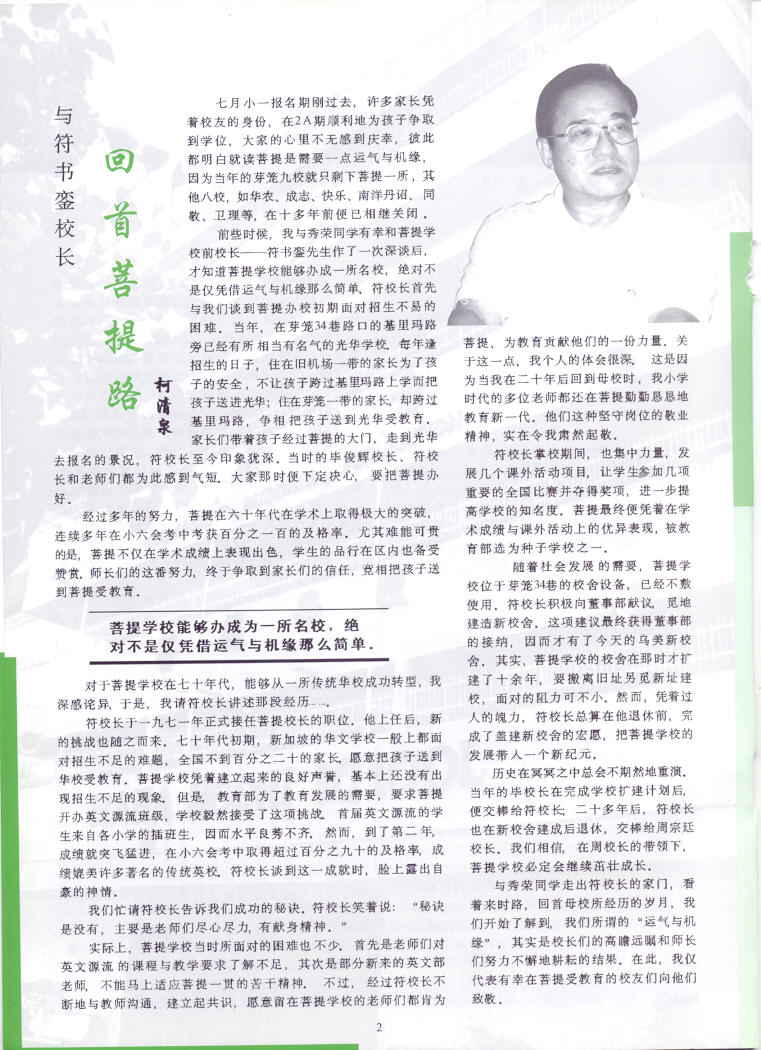 与符书銮校长
回首菩提路
柯清泉
七月小一报名期刚过去，许多家长凭
着校友的身份，在2A期顺利地为孩子争取
到学位，大家的心里不无感到庆幸，彼此
都明白就读菩提是需要一点运气与机缘，
因为当年的芽笼九校就只剩下菩提一所，其
他八校，如华农、成志、快乐、南洋丹诏、同
敬、卫理等，在十多年前便已相继关闭。
前些时候，我与秀荣同学有幸和菩提学
校前校长——符书銮先生作了一次深谈后，
才知道菩提学校能够办成一所名校，绝对不
是仅凭借运气与机缘那么简单。符校长首先
与我们谈到菩提办校初期面对招生不易的
困难。当年，在芽笼34巷路口的基里玛路
旁已经有所相当有名气的光华学校。每年逢
招生的日子，住在旧机场一带的家长为了孩
子的安全，不让孩子跨过基里玛路上学而把
孩子送进光华；住在芽笼一带的家长，却跨过
基里玛路，争相把孩子送到光华受教育。
家长们带着孩子经过菩提的大门，走到光华
去报名的景况，符校长至今印象犹深。当时的毕俊辉校长、符校
长和老师们都为此感到气短。大家那时便下定决心，要把菩提办
好。
经过多年的努力，菩提在六十年代在学术上取得极大的突破，
连续多年在小六会考中考获百分之一百的及格率。尤其难能可贵
的是，菩提不仅在学术成绩上表现出色，学生的品行在区内也备受
赞赏。师长们的这番努力，终于争取到家长们的信任，竞相把孩子送
到菩提受教育。
菩提学校能够办成为一所名校，绝
对不是仅凭借运气与机缘那么简单。
对于菩提学校在七十年代，能够从一所传统华校成功转型，我
深感诧异，于是，我请符校长讲述那段经历……。
符校长于一九七一年正式接任菩提校长的职位。他上任后，新
的挑战也随之而来。七十年代初期，新加坡的华文学校一般上都面
对招生不足的难题，全国不到百分之二十的家长，愿意把孩子送到
华校受教育。菩提学校凭着建立起来的良好声誉，基本上还没有出
现招生不足的现象。但是，教育部为了教育发展的需要，要求菩提
开办英文源流班级，学校毅然接受了这项挑战。首届英文源流的学
生来自各小学的插班生，因而水平良莠不齐。然而，到了第二年，
成绩就突飞猛进，在小六会考中取得超过百分之九十的及格率，成
绩媲美许多著名的传统英校。符校长谈到这一成就时，脸上露出自
豪的神情。
我们忙请符校长告诉我们成功的秘诀。符校长笑着说：“秘诀
是没有，主要是老师们尽心尽力，有献身精神。”
实际上，菩提学校当时所面对的困难也不少。首先是老师们对
英文源流的课程与教学要求了解不足，其次是部分新来的英文部
老师，不能马上适应菩提一贯的苦干精神。不过，经过符校长不
断地与教师沟通，建立起共识，愿意留在菩提学校的老师们都肯为
菩提、为教育贡献他们的一份力量。关
于这一点，我个人的体会很深。这是因
为当我在二十年后回到母校时，我小学
时代的多位老师都还在菩提勤勤恳恳地
教育新一代。他们这种坚守岗位的敬业
精神，实在令我肃然起敬。
符校长掌校期间，也集中力量，发
展几个课外活动项目，让学生参加几项
重要的全国比赛并夺得奖项，进一步提
高学校的知名度。菩提最终便凭着在学
术成绩与课外活动上的优异表现，被教
育部选为种子学校之一。
随着社会发展的需要，菩提学
校位于芽笼34巷的校舍设备，已经不敷
使用。符校长积极向董事部献议，觅地
建造新校舍。这项建议最终获得董事部
的接纳，因而才有了今天的乌美新校
舍。其实，菩提学校的校舍在那时才扩
建了十余年，要搬离旧址另觅新址建
校，面对的阻力可不小。然而，凭着过
人的魄力，符校长总算在他退休前，完
成了盖建新校舍的宏愿，把菩提学校的
发展带入一个新纪元。
历史在冥冥之中总会不期然地重演。
当年的毕校长在完成学校扩建计划后，
便交棒给符校长；二十多年后，符校长
也在新校舍建成后退休，交棒给周宗廷
校长。我们相信，在周校长的带领下，
菩提学校必定会继续茁壮成长。
与秀荣同学走出符校长的家门，看
着来时路，回首母校所经历的岁月，我
们开始了解到，我们所谓的“运气与机
缘”，其实是校长们的高瞻远瞩和师长
们努力不懈地耕耘的结果。在此，我仅
代表有幸在菩提受教育的校友们向他们
致敬。
2